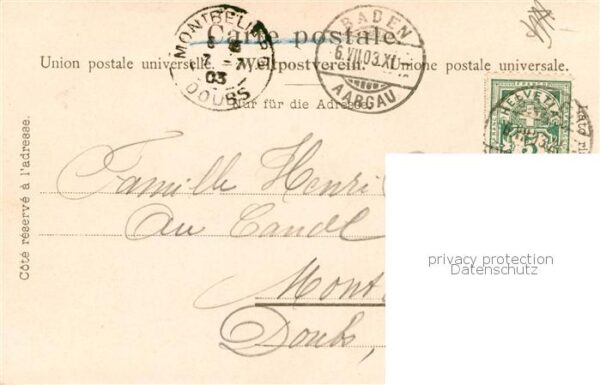 Carte postale.
Union postale universelle. – Weltpostverein. – Unione postale universale.
Nur für die Adresse.
Côté réservé à l'adresse.
MONTBELIARD
7 - 7
03
DOUBS
BADEN
6.VII.03.XI
AARGAU
HELVETIA
5
Famille Henri
au Canal
Mont
Doubs,
privacy protection
Datenschutz